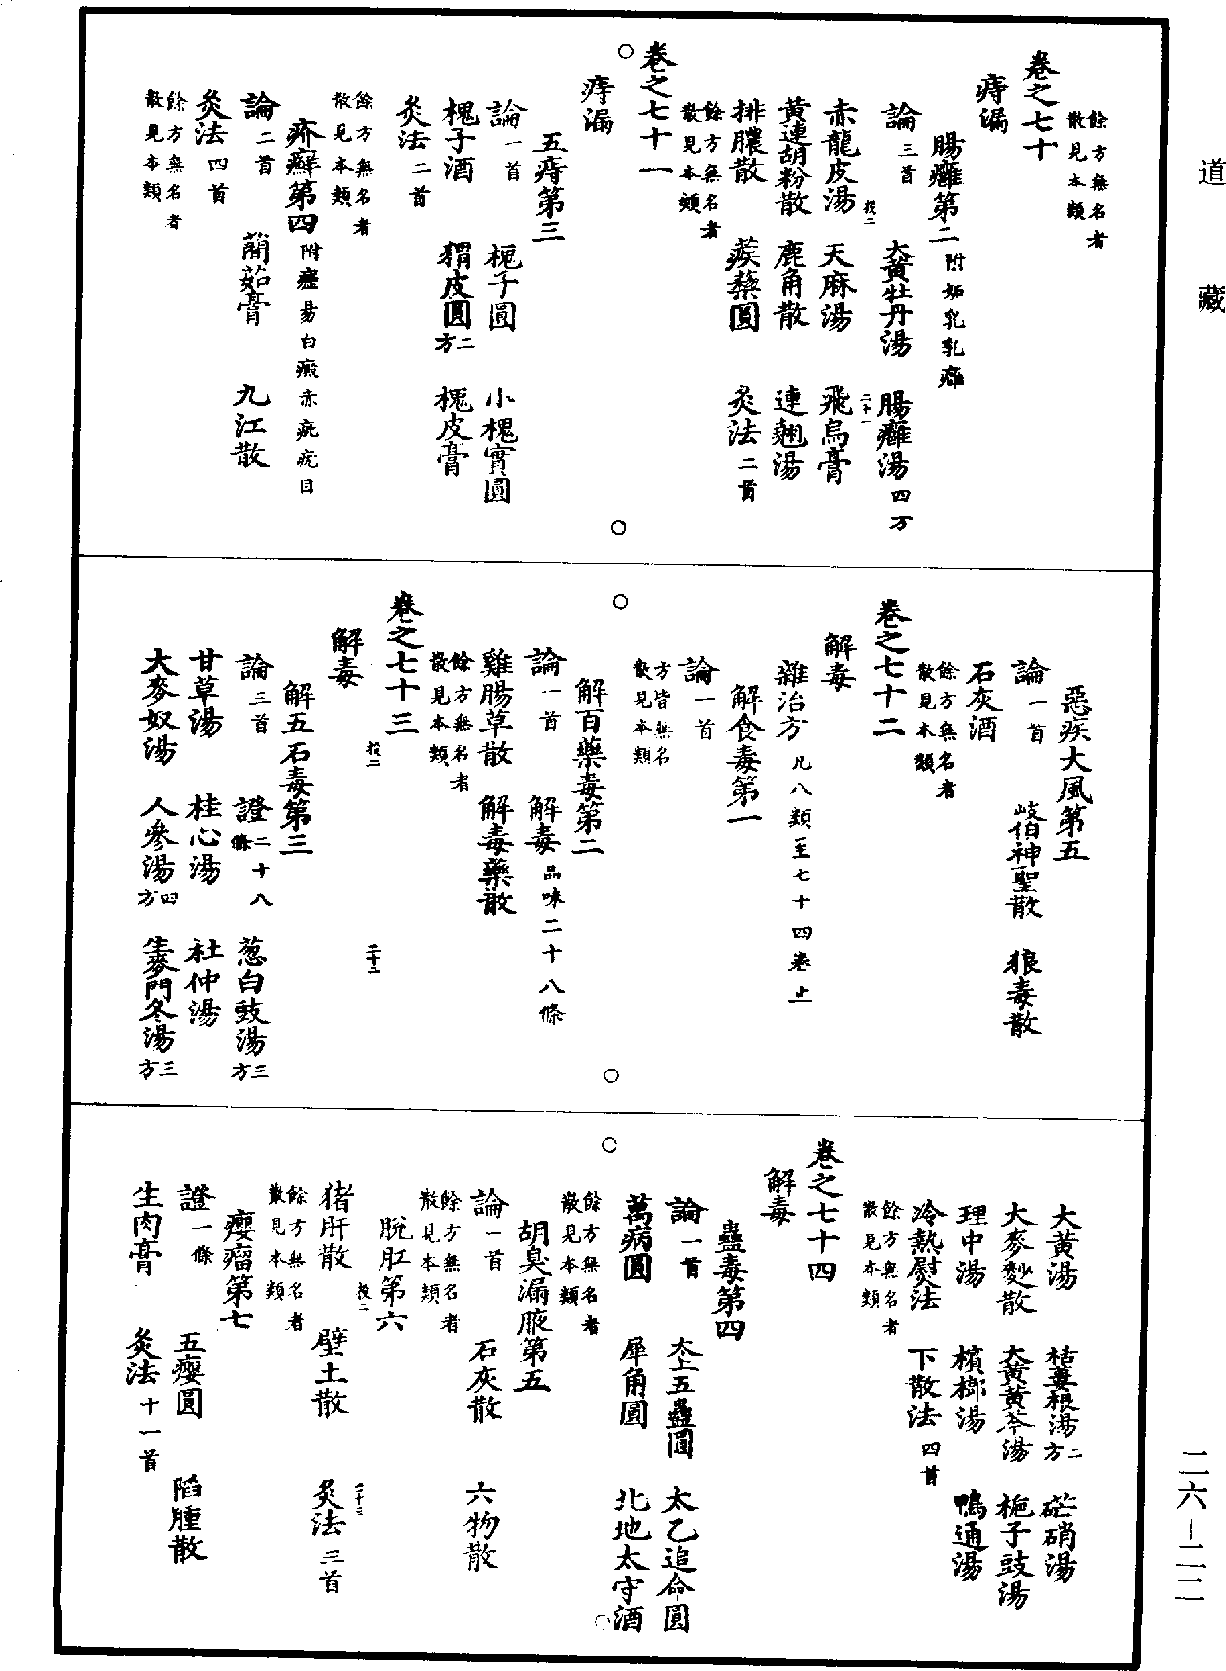 道藏
餘方無名者
散見本類
卷之七十
痔漏
腸癰第二 附妬乳乳癰
論三首 大黃牡丹湯 腸癰湯四方
投二 二十一
赤龍皮湯 天麻湯 飛烏膏
黃連胡粉散 鹿角散 連翹湯
排膿散 蒺藜圓 灸法二首
餘方無名者
散見本類
卷之七十一
痔漏
五痔第三
論一首 梔子圓 小槐實圓
槐子酒 猬皮圓二方 槐皮膏
灸法二首
餘方無名者
散見本類
疥癬第四 附癧瘍白癜赤疵疣目
論二首 䕡茹膏 九江散
灸法四首
餘方無名者
散見本類
惡疾大風第五
論一首 岐伯神聖散 狼毒散
石灰酒
餘方無名者
散見本類
卷之七十二
解毒
雜治方 凡八類至七十四卷止
解食毒第一
論一首
方皆無名
散見本類
解百藥毒第二
論一首 解毒品味二十八條
雞腸草散 解毒藥散
餘方無名者
散見本類
卷之七十三
投二 二十二
解毒
解五石毒第三
論三首 證二十八條 葱白豉湯三方
甘草湯 桂心湯 杜仲湯
大麥奴湯 人參湯四方 生麥門冬湯三方
大黃湯 栝蔞根湯二方 芒硝湯
大麥麨散 大黃黃芩湯 梔子豉湯
理中湯 檳榔湯 鴨通湯
冷熱熨法 下散法四首
餘方無名者
散見本類
卷之七十四
解毒
蠱毒第四
論一首 太上五蠱圓 太乙追命圓
萬病圓 犀角圓 北地太守酒
餘方無名者
散見本類
胡臭漏腋第五
論一首 石灰散 六物散
餘方無名者
散見本類
脫肛第六
投二 二十三
猪肝散 壁土散 灸法三首
餘方無名者
散見本類
癭瘤第七
證一條 五癭圓 陷腫散
生肉膏 灸法十一首
二六－二二